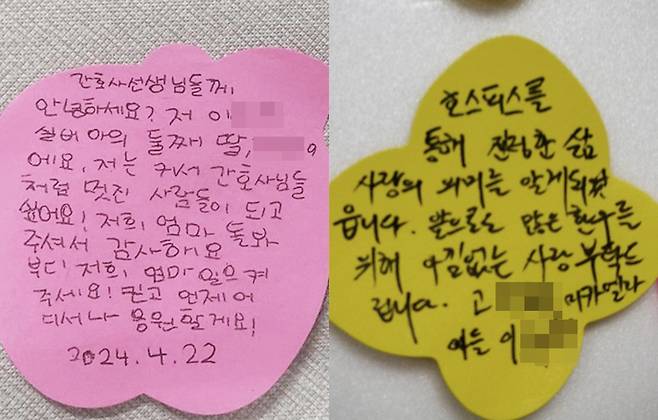 간호사선생님들께,
안녕하세요? 저 이
실비아의 둘째 딸,
에요. 저는 커서 간호사님들
처럼 멋진 사람들이 되고
싶어요! 저희 엄마 돌봐
주셔서 감사해요
부디 저희 엄마 일으켜
주세요! 믿고 언제 어
디서나 응원할게요!
2024.4.22
호스피스를
통해 진정한 삶
사랑의 의미를 알게되었
습니다. 앞으로도 많은 환우를
위해 아낌없는 사랑 부탁드
립니다. 고 미카엘라
아들 이